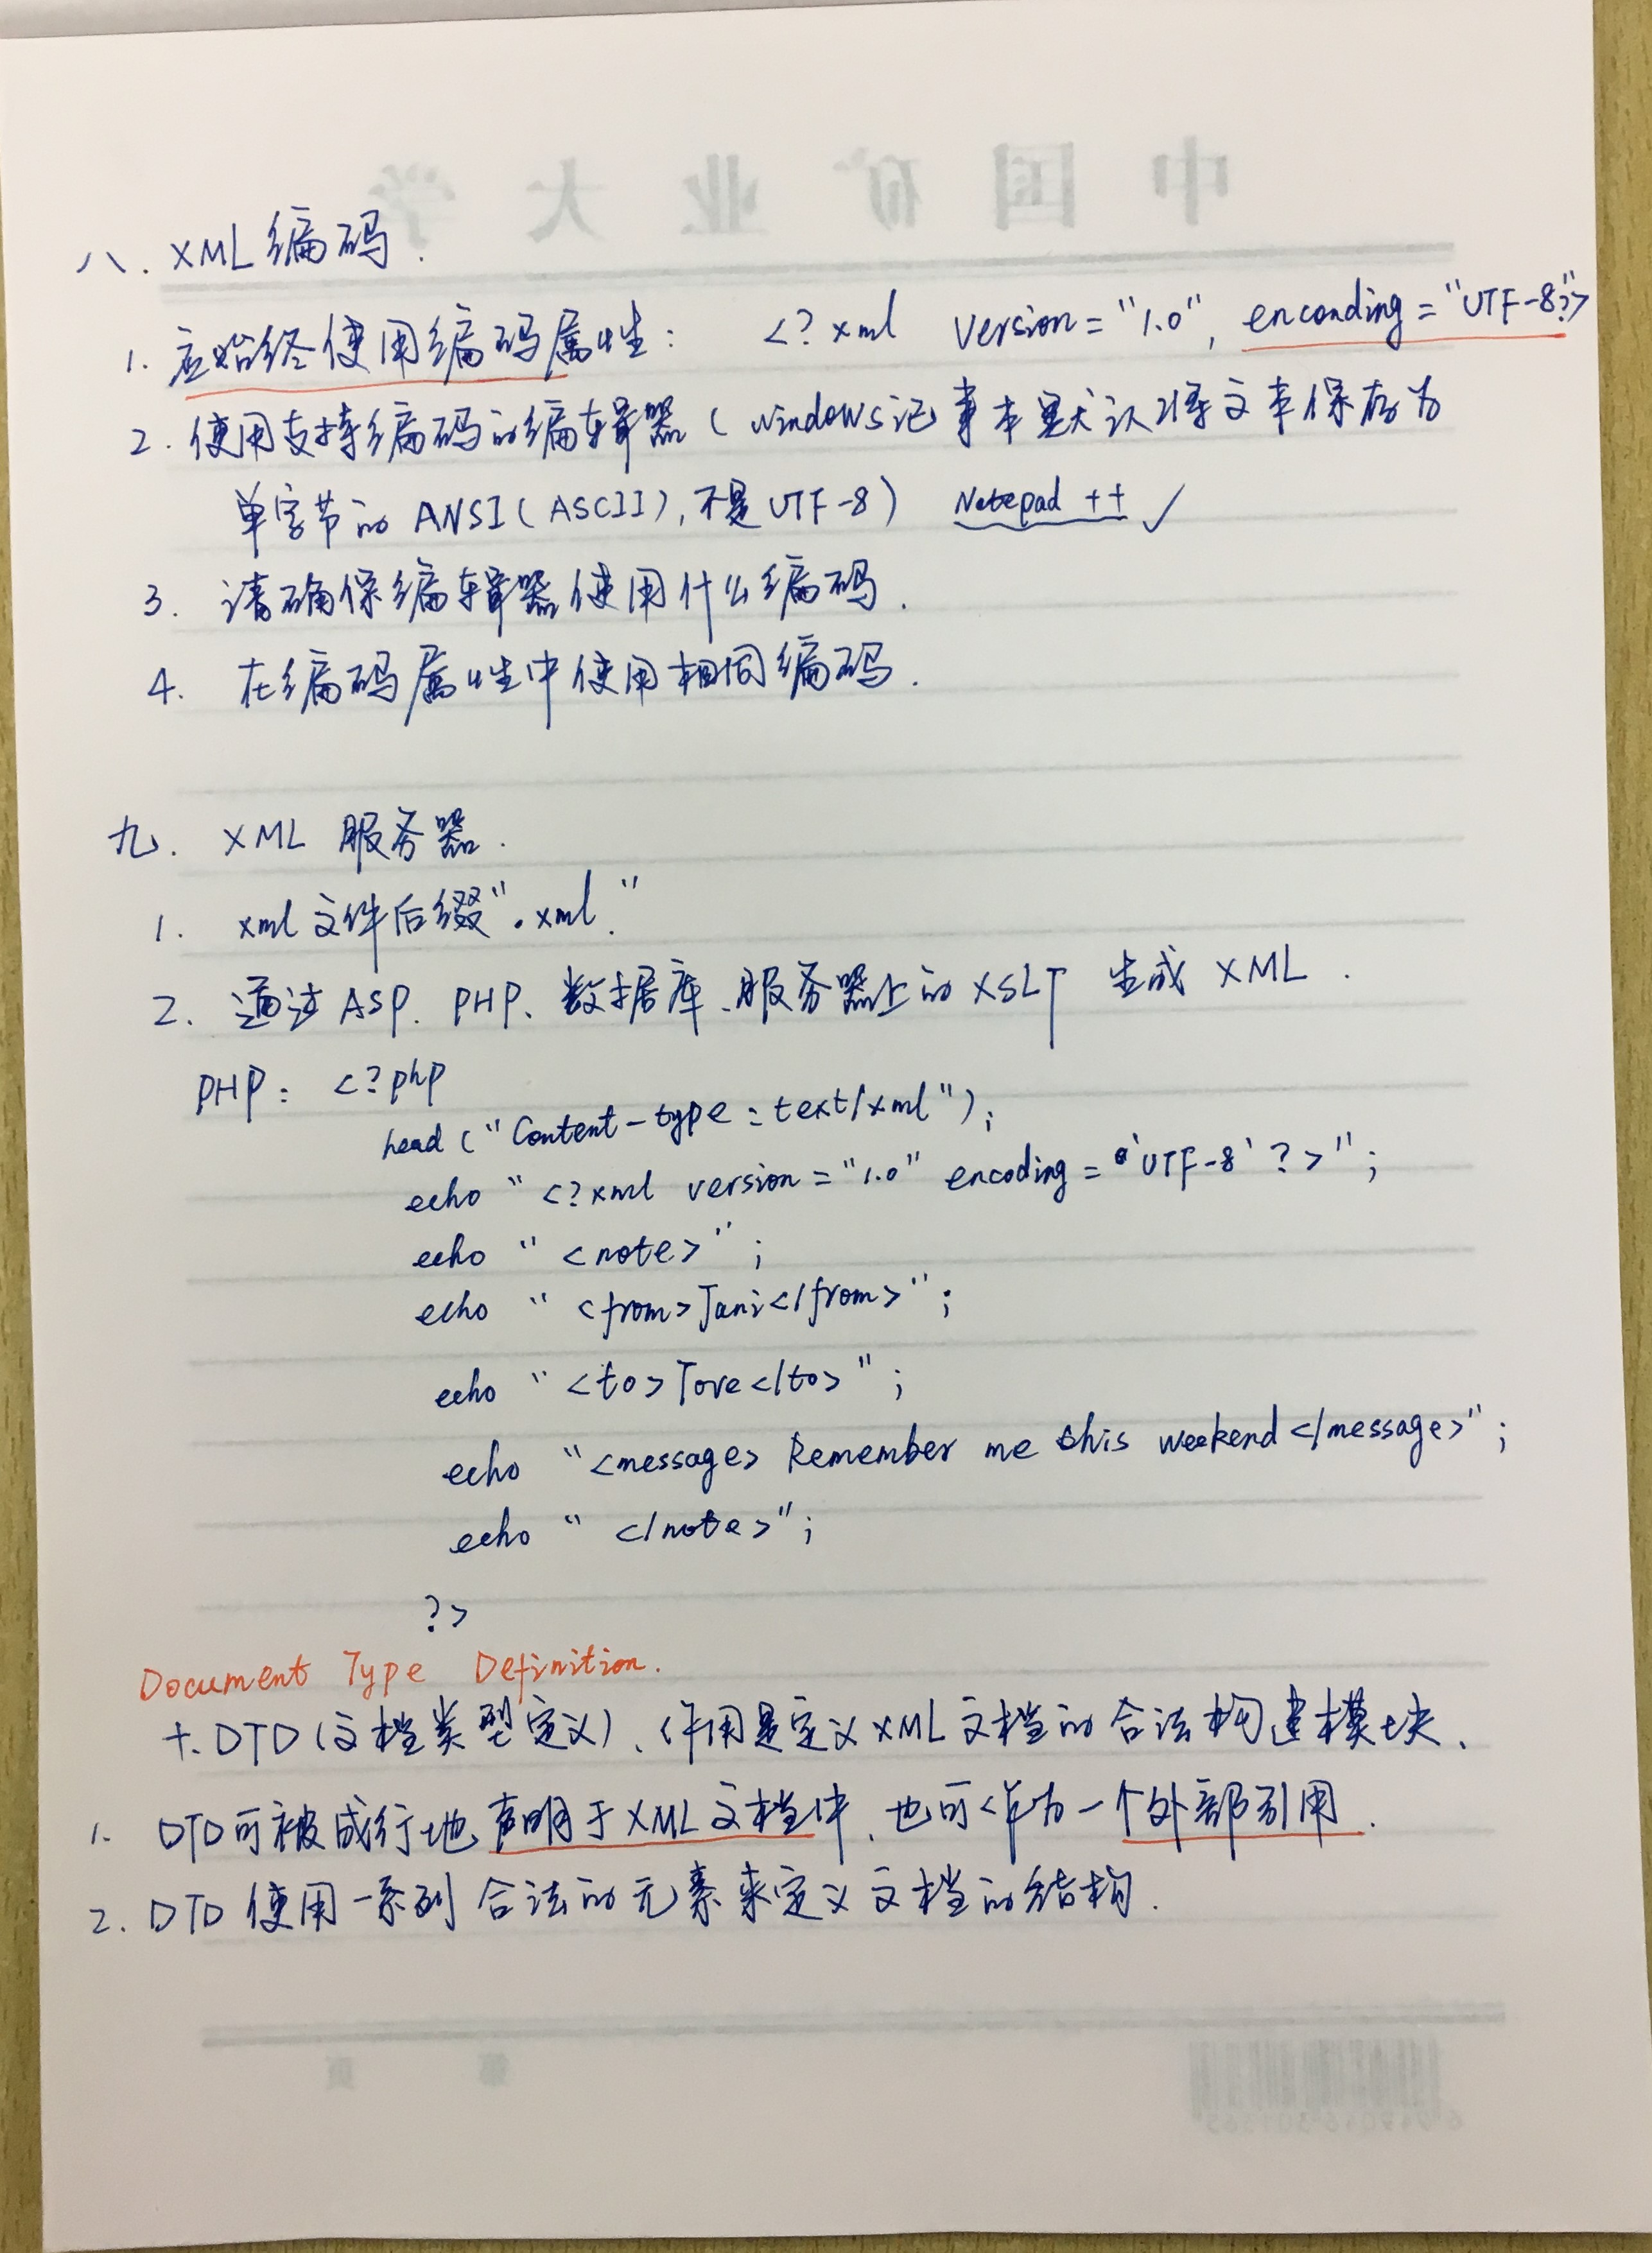 中国矿业大学
八. XML编码.
1. 应始终使用编码属性: <?xml version="1.0", enconding="UTF-8"?>
2. 使用支持编码的编辑器(windows记事本默认将文本保存为
单字节的ANSI(ASCII),不是UTF-8) Notepad ++ ✓
3. 请确保编辑器使用什么编码.
4. 在编码属性中使用相同编码.
九. XML 服务器.
1. xml文件后缀".xml."
2. 通过ASP、PHP、数据库、服务器上的XSLT 生成 XML.
PHP: <?php
head("Content-type:text/xml");
echo "<?xml version="1.0" encoding='UTF-8'?>";
echo "<note>";
echo "<from>Jani</from>";
echo "<to>Tove</to>";
echo "<message>Remember me this weekend</message>";
echo "</note>";
?>
Document Type Definition.
十. DTD(文档类型定义)、作用是定义XML文档的合法构建模块、
1. DTD可被成行地声明于XML文档中、也可作为一个外部引用.
2. DTD使用一系列合法的元素来定义文档的结构.
第 页